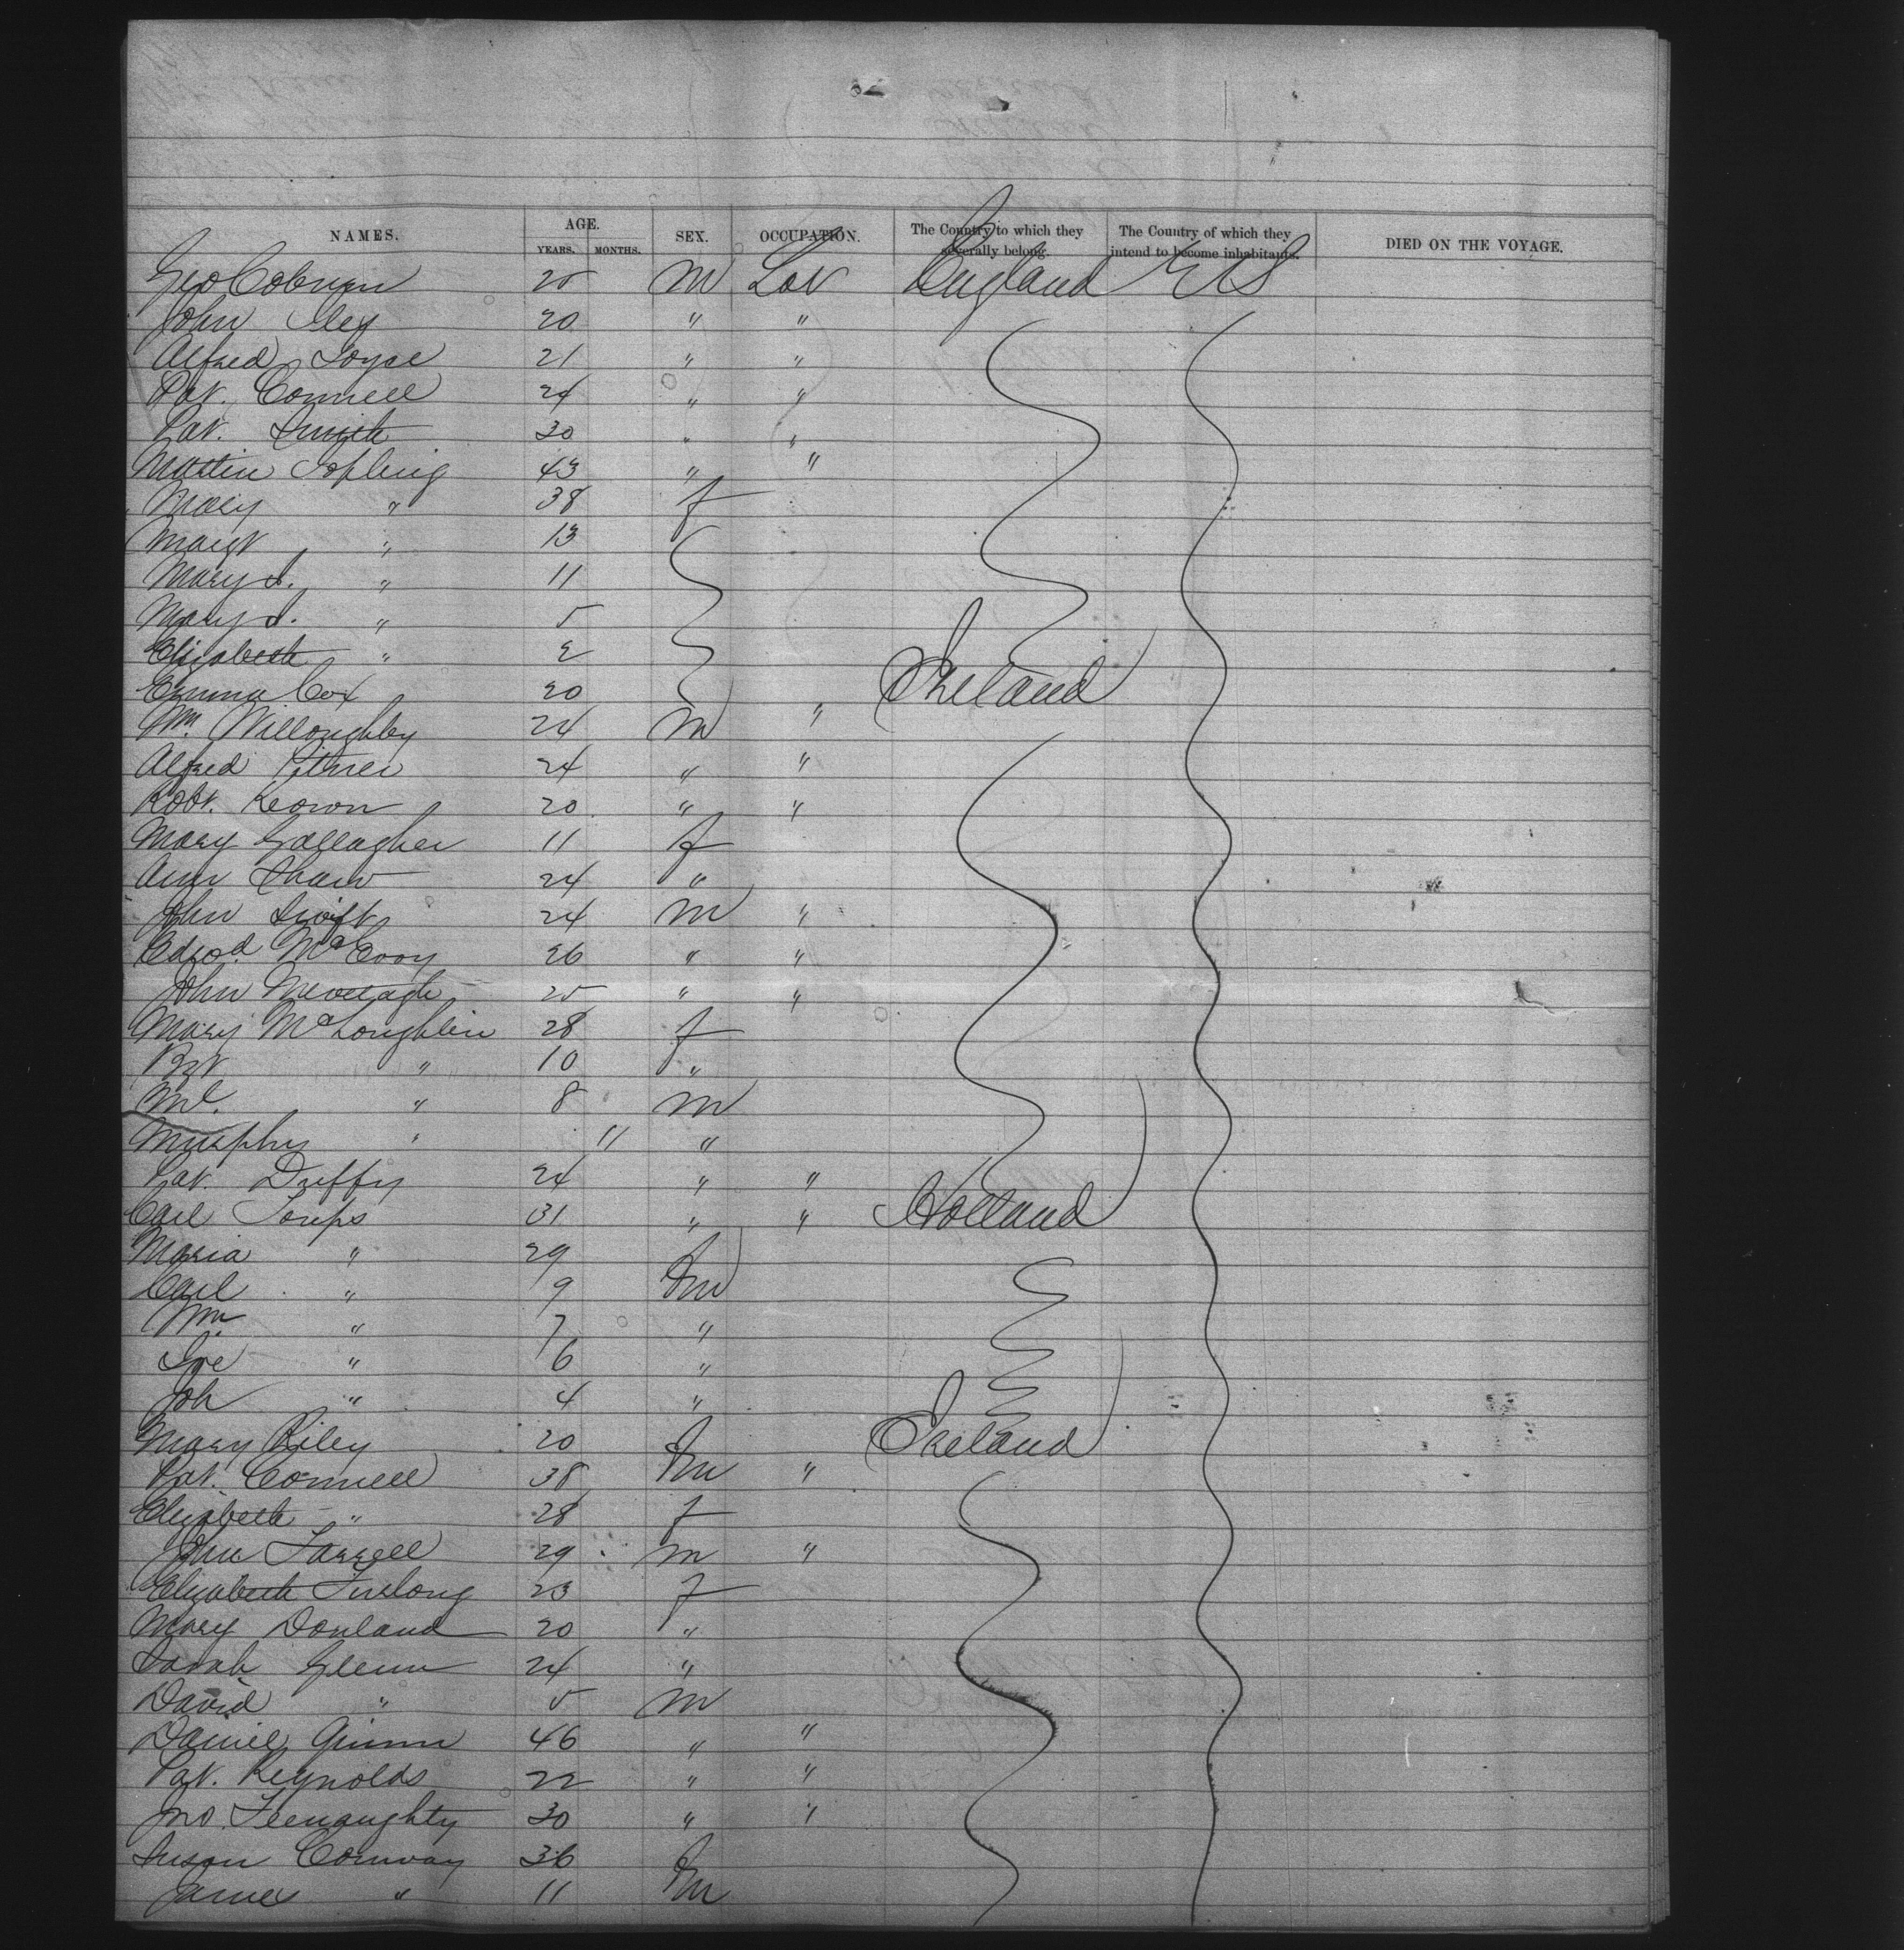 NAMES. AGE. YEARS. MONTHS. SEX. OCCUPATION. The Country to which they severally belong. The Country of which they intend to become inhabitants. DIED ON THE VOYAGE.
Geo Coburn 25 M Lab England U S
John Iley 20 " "
Alfred Joyce 21 " "
Pat. Connell 24 " "
Pat. Smith 30 " "
Martin Jopling 43 " "
Mary " 38 f
Margt " 13
Mary J. " 11
Mary J. " 5
Elizabeth " 2
Emma Cox 20 Ireland
Wm. Willoughby 24 M "
Alfred Pitner 24 " "
Robt. Keown 20 " "
Mary Gallagher 11 f
Ann Shaw 24 "
John Swift 24 M "
Edwd McEvoy 26 " "
John 25 " "
Mary McLoughlin 28 f
Bgt " 10 "
Ml. " 8 M
Murphy " 11 "
Pat. Duffy 24 " "
Carl 31 " " Holland
Maria " 29 f
Carl " 9 M
Wm. " 7 "
" 6 "
Joh " 4 "
Mary Riley 20 f Ireland
Pat. Connell 38 M "
Elizabeth " 28 f
John Farrell 29 M "
Elizabeth Furlong 23 f
Mary Donland 20 "
Sarah Glenn 24 "
David " 5 M
Daniel Quinn 46 " "
Pat. Reynolds 22 " "
Jno. Feenaughty 30 " "
Susan Conway 36 f
James " 11 M